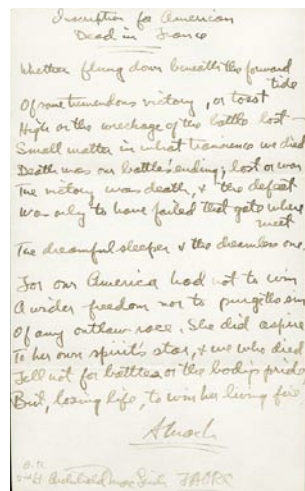 Inscription for American
Dead in France
Whether flung down beneath the forward
tide
Of some tremendous victory, or tost
High on the wreckage of the battle lost —
Small matter in what transience we died
Death was our battle's ending, lost or won
The victory was death, & the defeat
Was only to have failed that gate where
meet
The dreamful sleeper & the dreamless one.
For our America had not to win
A wider freedom nor to purge the sin
Of any outlaw race. She did aspire
To her own spirit's star, & we who died
Fell not for battles or the body's pride
But, losing life, to win her living fire
AMacL
Archibald MacLeish